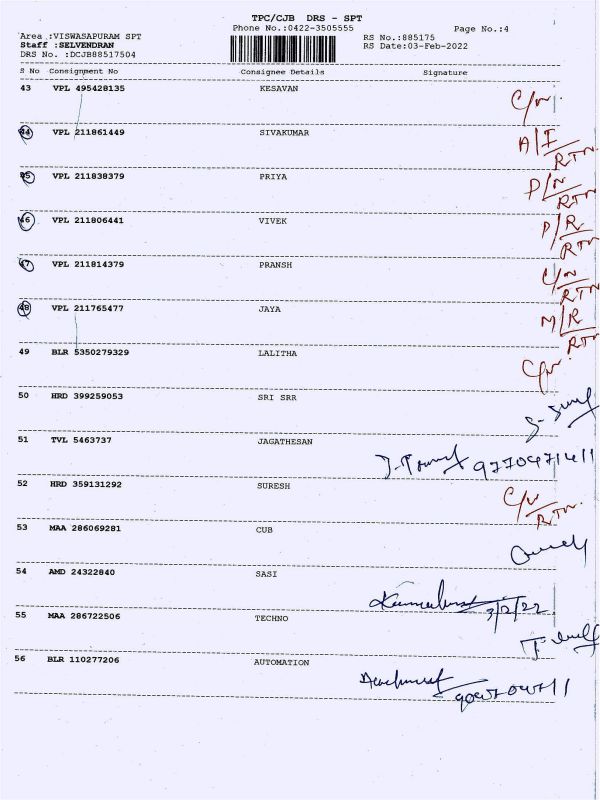 TPC/CJB DRS - SPT
Phone No.:0422-3505555 Page No.:4
Area :VISWASAPURAM SPT RS No.:885175
Staff :SELVENDRAN RS Date:03-Feb-2022
DRS No. :DCJB88517504
S No Consignment No Consignee Details Signature
43 VPL 495428135 KESAVAN
C/N.
44 VPL 211861449 SIVAKUMAR
A/I/RTN
45 VPL 211838379 PRIYA
D/N/RTN
46 VPL 211806441 VIVEK
P/R/RTN
47 VPL 211814379 PRANSH
C/N/RTN
48 VPL 211765477 JAYA
M/R/RTN
49 BLR 5350279329 LALITHA
C/N.
50 HRD 399259053 SRI SRR
51 TVL 5463737 JAGATHESAN
52 HRD 359131292 SURESH
C/N/RTN.
53 MAA 286069281 CUB
54 AMD 24322840 SASI
3/2/22
55 MAA 286722506 TECHNO
56 BLR 110277206 AUTOMATION